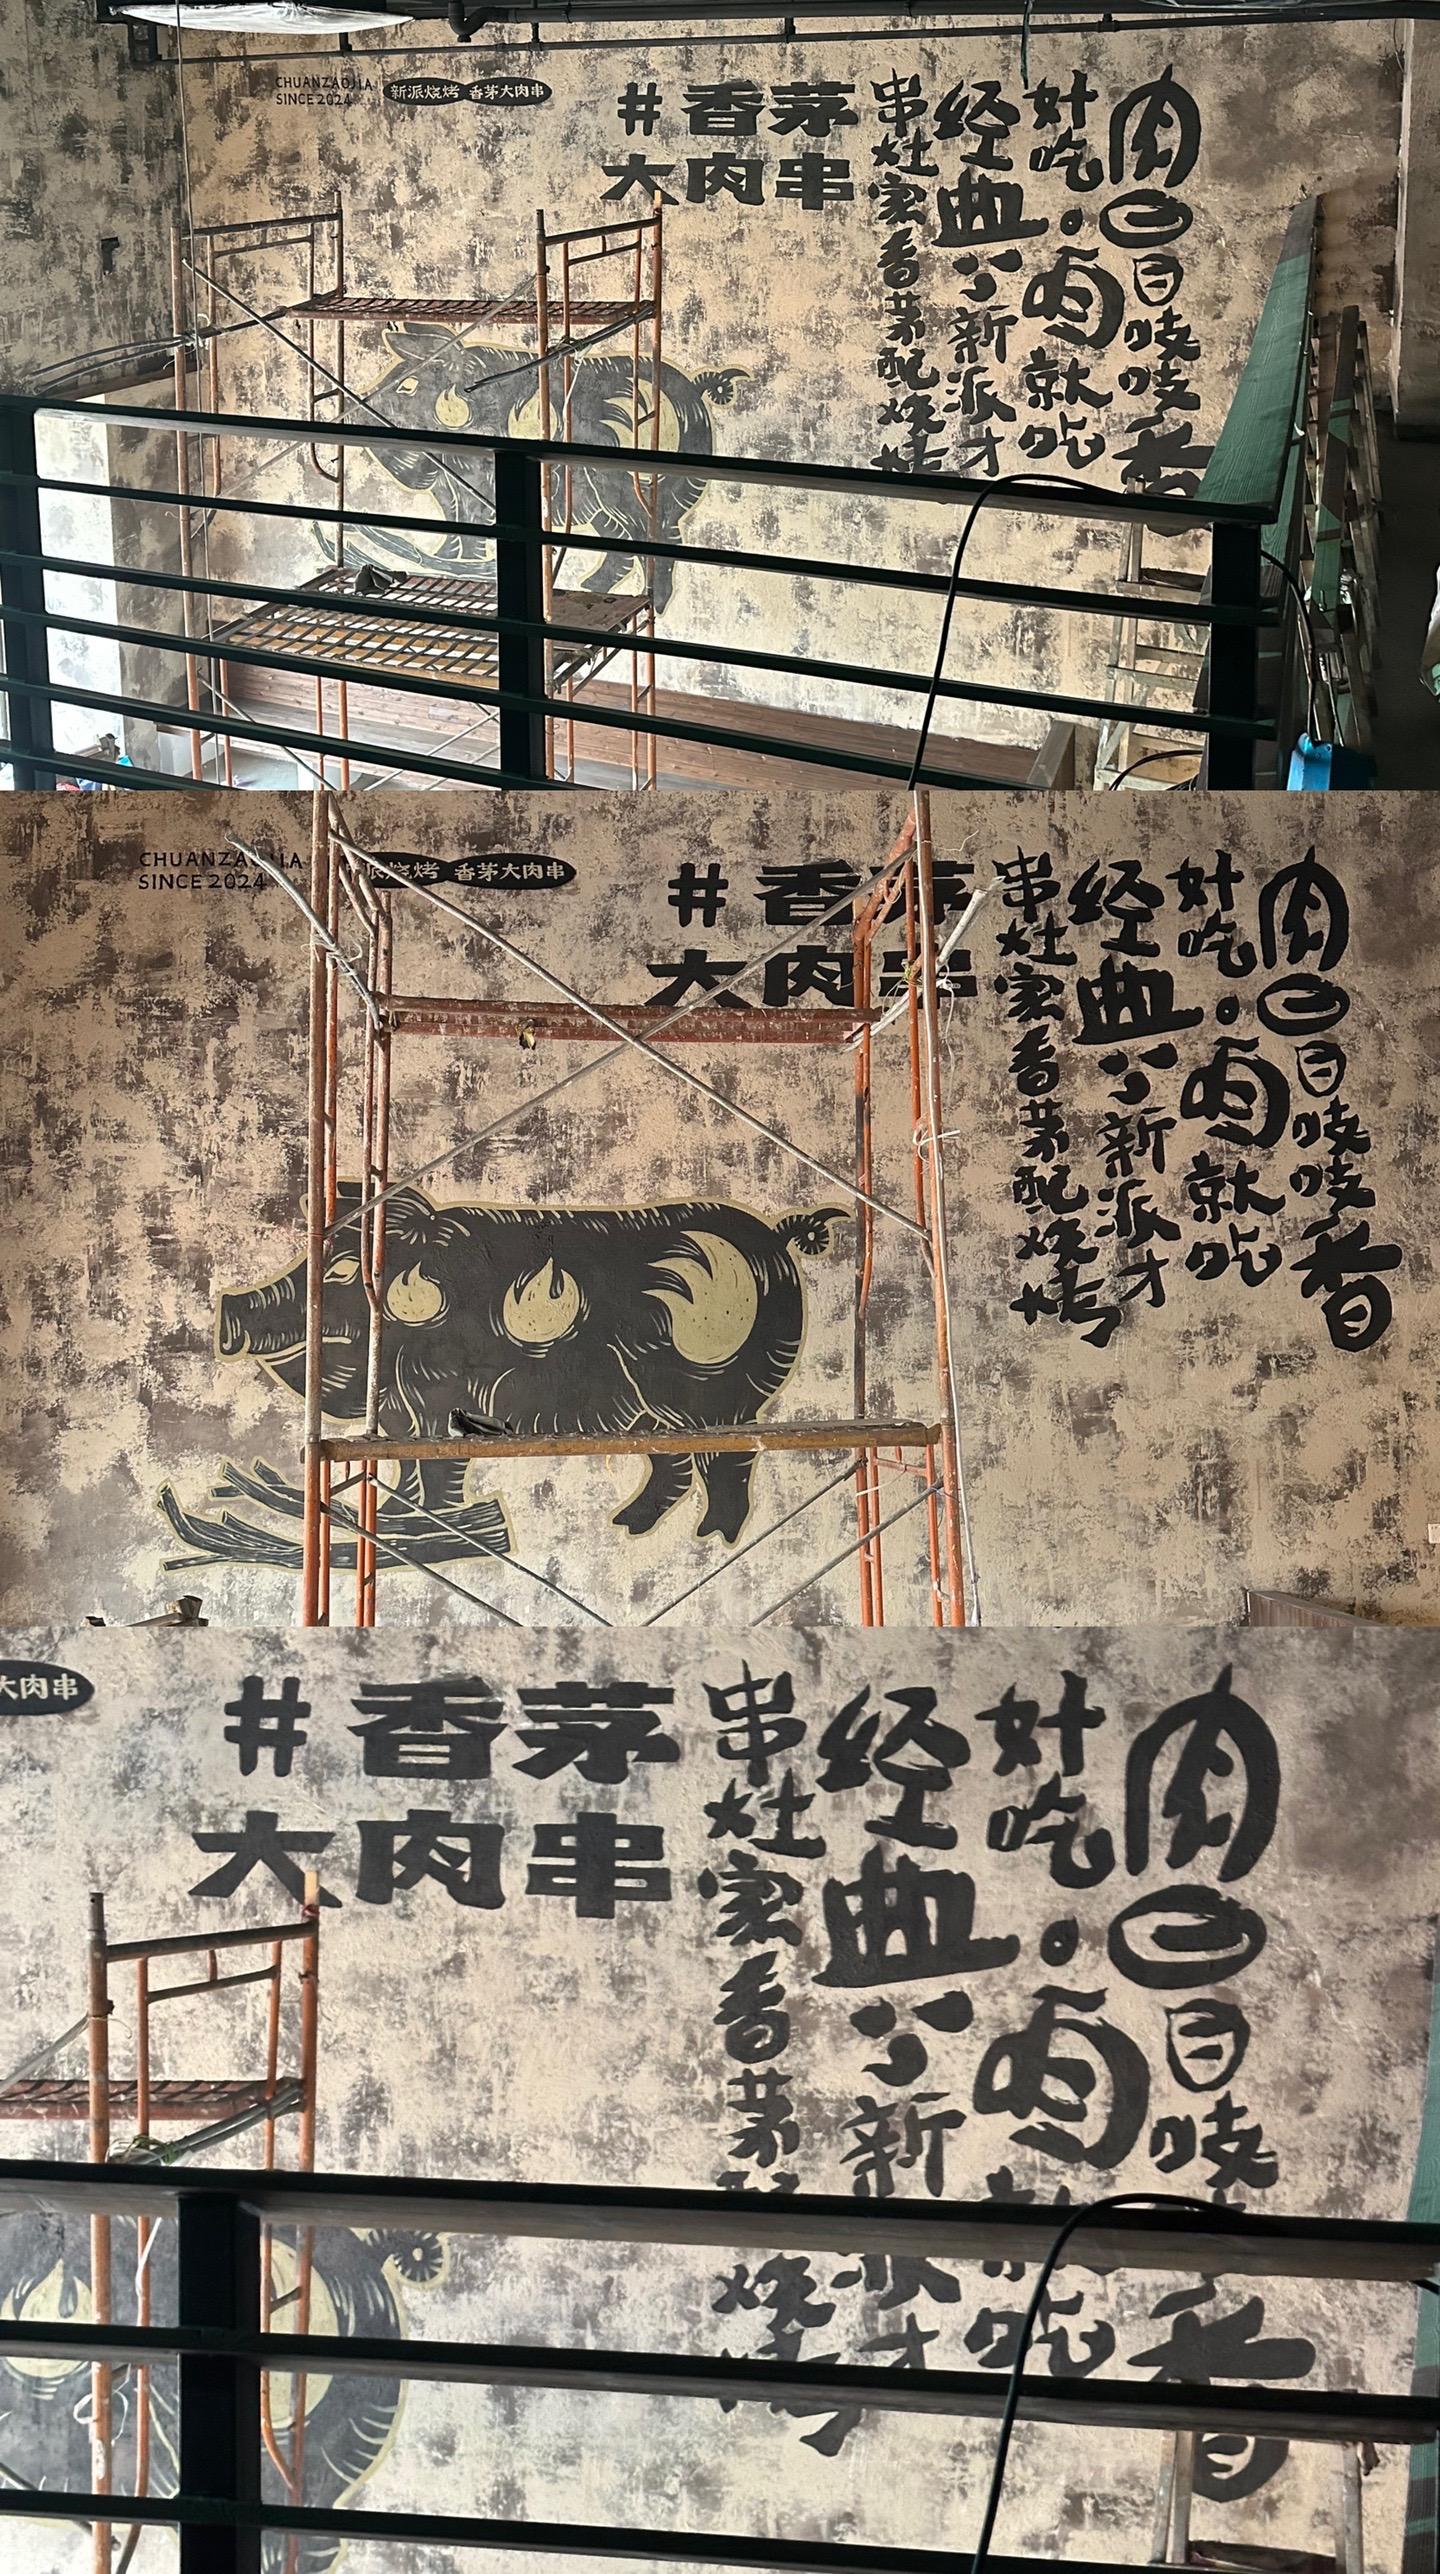 CHUANZAOJIA
SINCE 2024
新派烧烤 香茅大肉串
#香茅
大肉串
肉 吱吱香
好吃 就吃
经典 新派才
串灶家香茅配烧烤
CHUANZAOJIA
SINCE 2024
派烧烤 香茅大肉串
#香茅
大肉串
肉 吱吱香
好吃 就吃
经典 新派才
串灶家香茅配烧烤
大肉串
#香茅
大肉串
肉 吱 香
好吃 吃
经典 新派才
串灶家香茅 烧